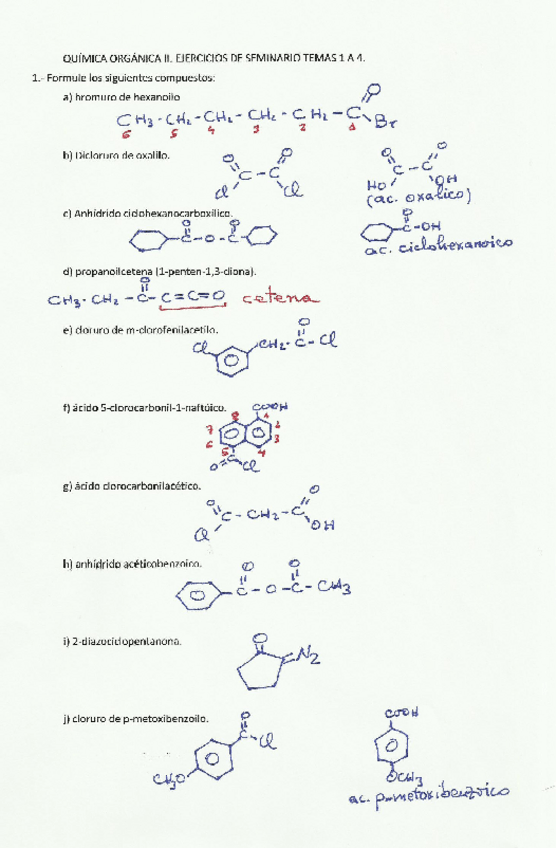 QUÍMICA ORGÁNICA II. EJERCICIOS DE SEMINARIO TEMAS 1 A 4.
1.- Formule los siguientes compuestos:
a) bromuro de hexanoilo
CH3-CH2-CH2-CH2-CH2-C O Br
6 5 4 3 2 1
b) Dicloruro de oxalilo.
O O C-C Cl Cl
O O C-C HO OH
(ac. oxalico)
c) Anhídrido ciclohexanocarboxílico.
O O C-O-C
O C-OH
ac. ciclohexanoico
d) propanoilcetena (1-penten-1,3-diona).
CH3-CH2-C-C=C=O cetena
O
e) cloruro de m-clorofenilacetilo.
Cl CH2-C-Cl
O
f) ácido 5-clorocarbonil-1-naftóico.
COOH
8 1
7 2
6 3
5 4
O=C Cl
g) ácido clorocarbonilacético.
O O
C-CH2-C
Cl OH
h) anhídrido acéticobenzoico.
O O
C-O-C-CH3
i) 2-diazociclopentanona.
O
N2
j) cloruro de p-metoxibenzoilo.
O
C-Cl
CH3O
COOH
OCH3
ac. p-metoxibenzoico